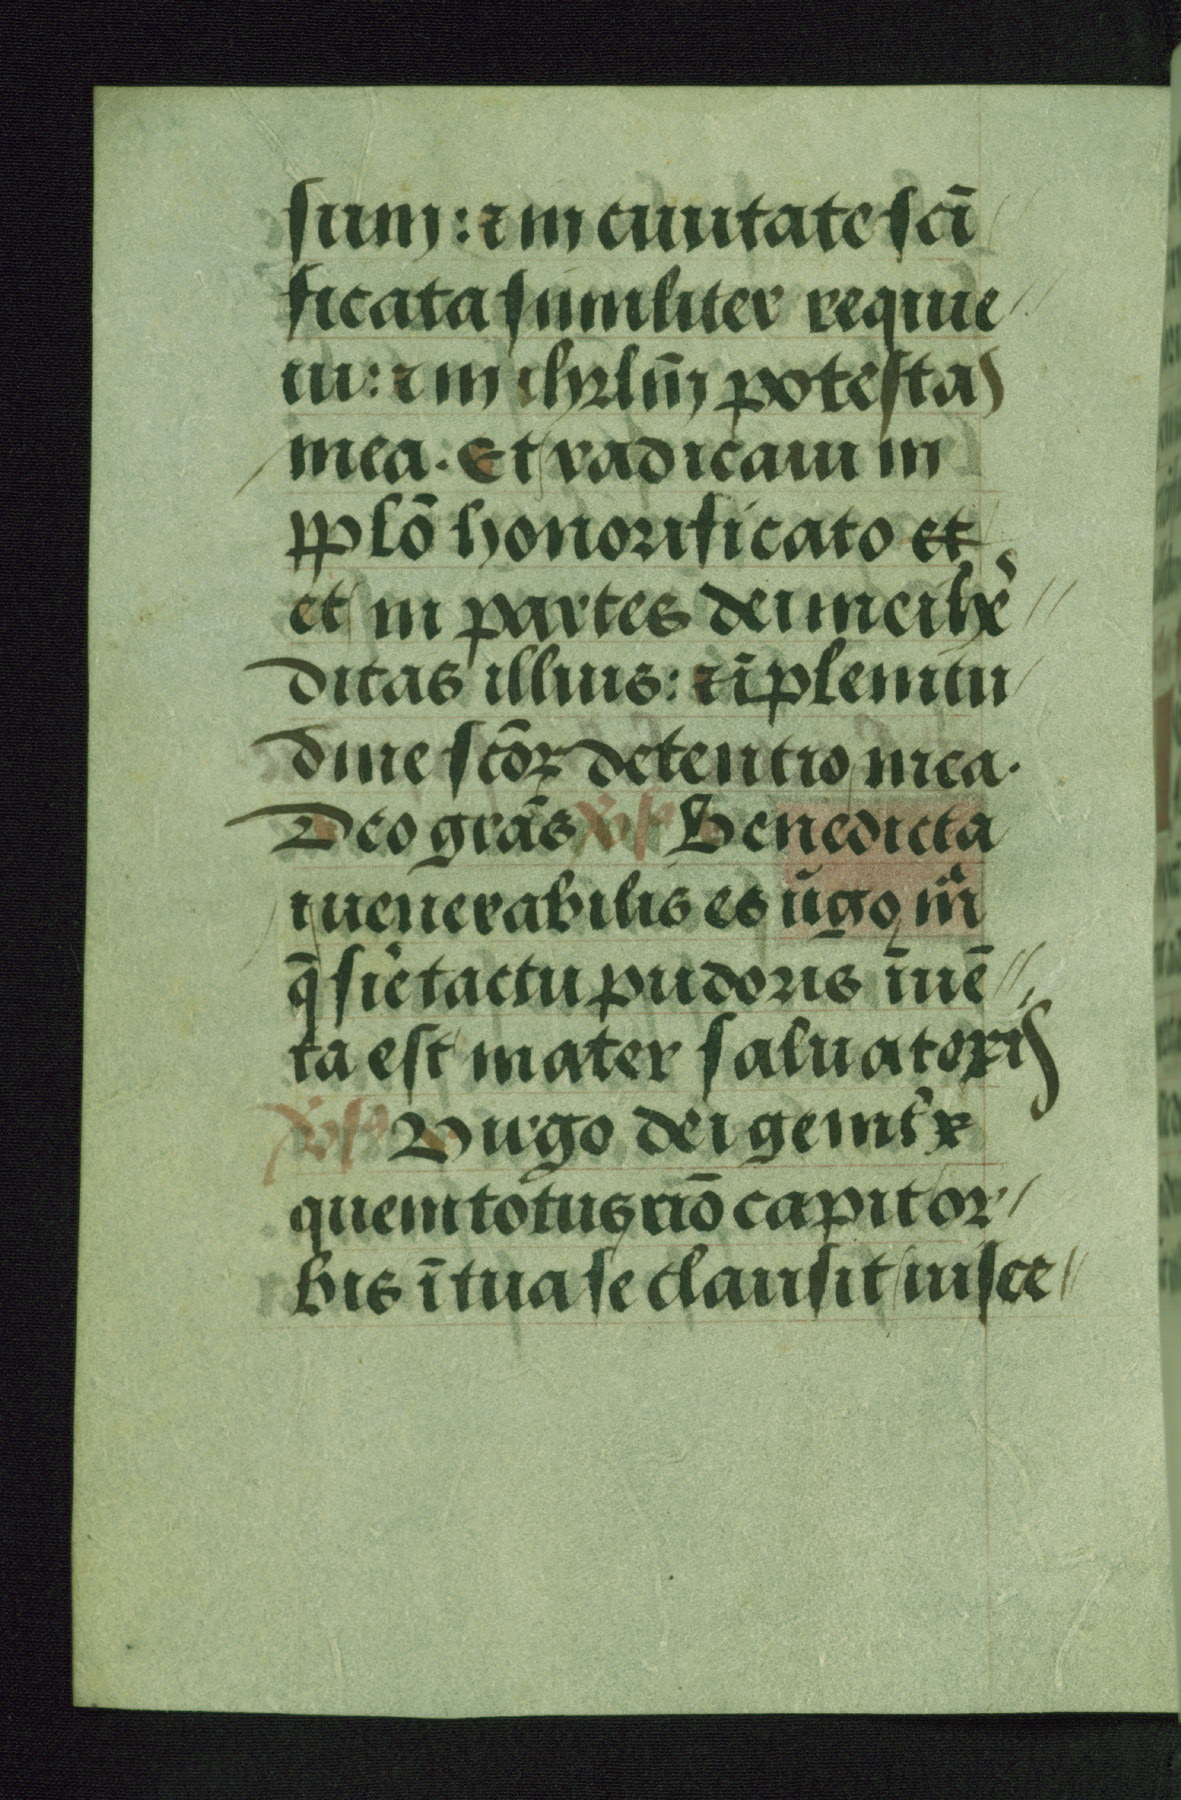 sum: ⁊ in ciuitate scī
ficata similiter requie
ui: ⁊ in ihrlm̄ potestas
mea. Et radicaui in
pplō honorificato et
et in partes dei mei here
ditas illius: ⁊ ī plenitu
dine scōꝝ detentio mea.
Deo grās R̃s Benedicta
⁊ uenerabilis es ũgo m̃i
q̄ sīe tactu pudoris īuē
ta est mater saluatoris
V̊s Virgo dei genitͥx
quem totus nō capit or
bis ī tua se clausit uisce